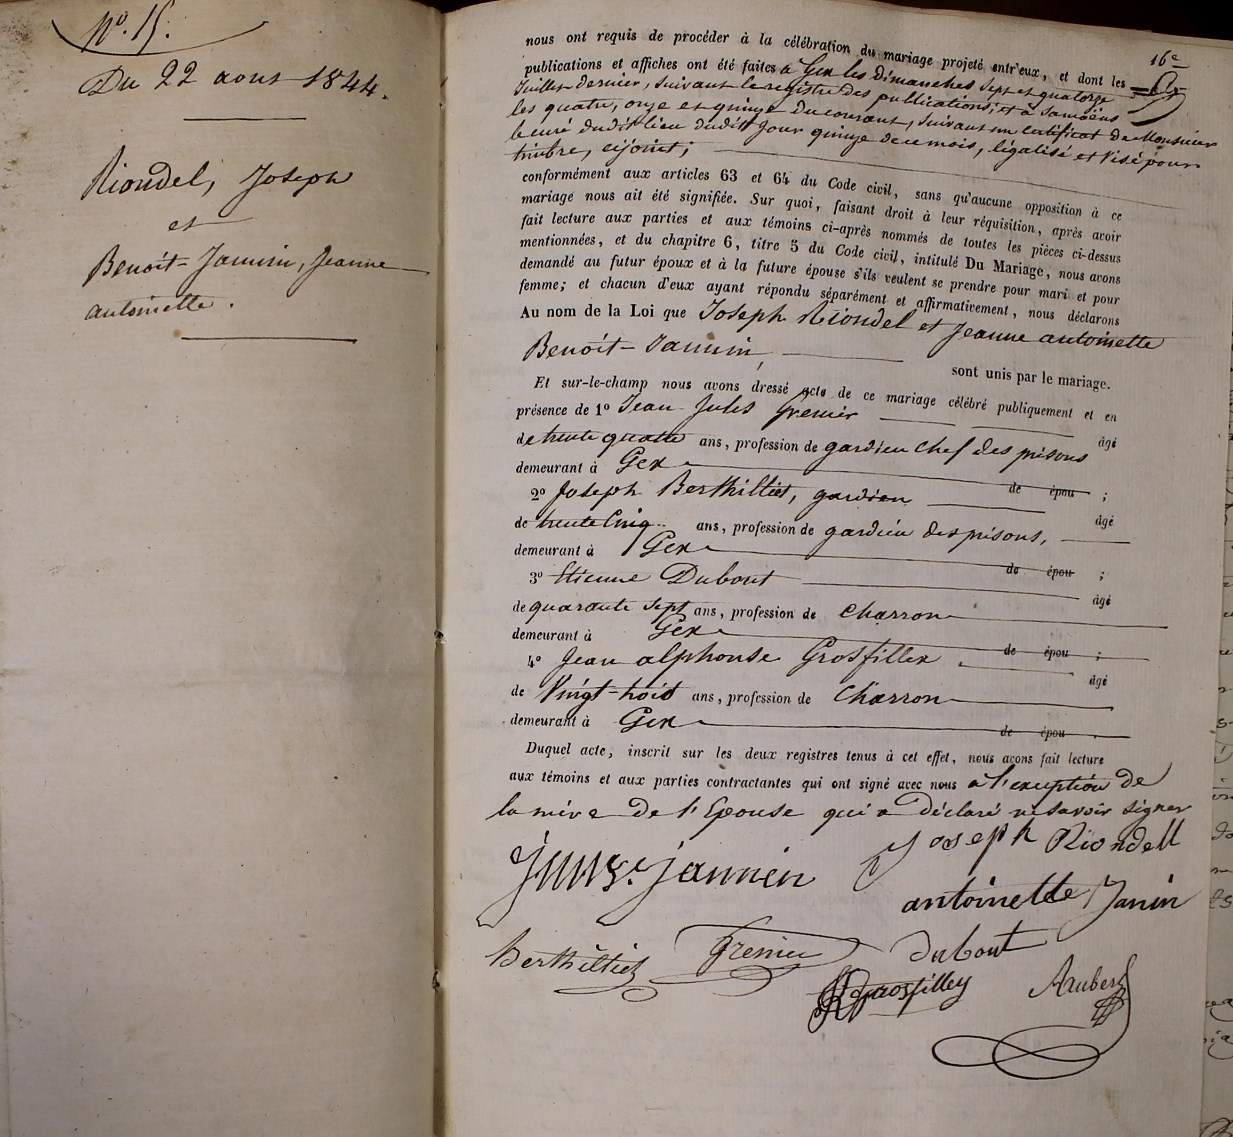 N°. 15.
Du 22 aout 1844.
Riondel, Joseph
et
Benoît-Jannin, Jeanne
antoinette.
16e
nous ont requis de procéder à la célébration du mariage projeté entr'eux, et dont les
publications et affiches ont été faites à Gex les Dimanches sept et quatorze
Juillet dernier, suivant le registre des publications; et à Samoëns
les quatre, onze et quinze du courant, suivant un certificat de Monsieur
le curé dudit lieu dudit jour quinze de ce mois, légalisé et visé pour
timbre, cijoint;
conformément aux articles 63 et 64 du Code civil, sans qu'aucune opposition à ce
mariage nous ait été signifiée. Sur quoi, faisant droit à leur réquisition, après avoir
fait lecture aux parties et aux témoins ci-après nommés de toutes les pièces ci-dessus
mentionnées, et du chapitre 6, titre 5 du Code civil, intitulé Du Mariage, nous avons
demandé au futur époux et à la future épouse s'ils veulent se prendre pour mari et pour
femme; et chacun d'eux ayant répondu séparément et affirmativement, nous déclarons
Au nom de la Loi que Joseph Riondel et Jeanne antoinette
Benoît-Jannin,
sont unis par le mariage.
Et sur-le-champ nous avons dressé acte de ce mariage célébré publiquement et en
présence de 1° Jean Jules Grenier
âgé
de trente quatre ans, profession de gardien chef des prisons
demeurant à Gex
de épou ;
2° Joseph Berthilliet, gardien
âgé
de trente cinq ans, profession de gardien des prisons,
demeurant à Gex
de épou ;
3° Etienne Dubout
âgé
de quarante sept ans, profession de charron
demeurant à Gex
de épou ;
4° Jean alphonse Grosfilley
âgé
de Vingt-huit ans, profession de charron
demeurant à Gex
de épou .
Duquel acte, inscrit sur les deux registres tenus à cet effet, nous avons fait lecture
aux témoins et aux parties contractantes qui ont signé avec nous à l'exception de
la mère de l'Epouse qui a Déclaré ne savoir signer
jannin Joseph Riondell
antoinette Janin
Berthilliet Grenier Dubout
grosfilley Aubert